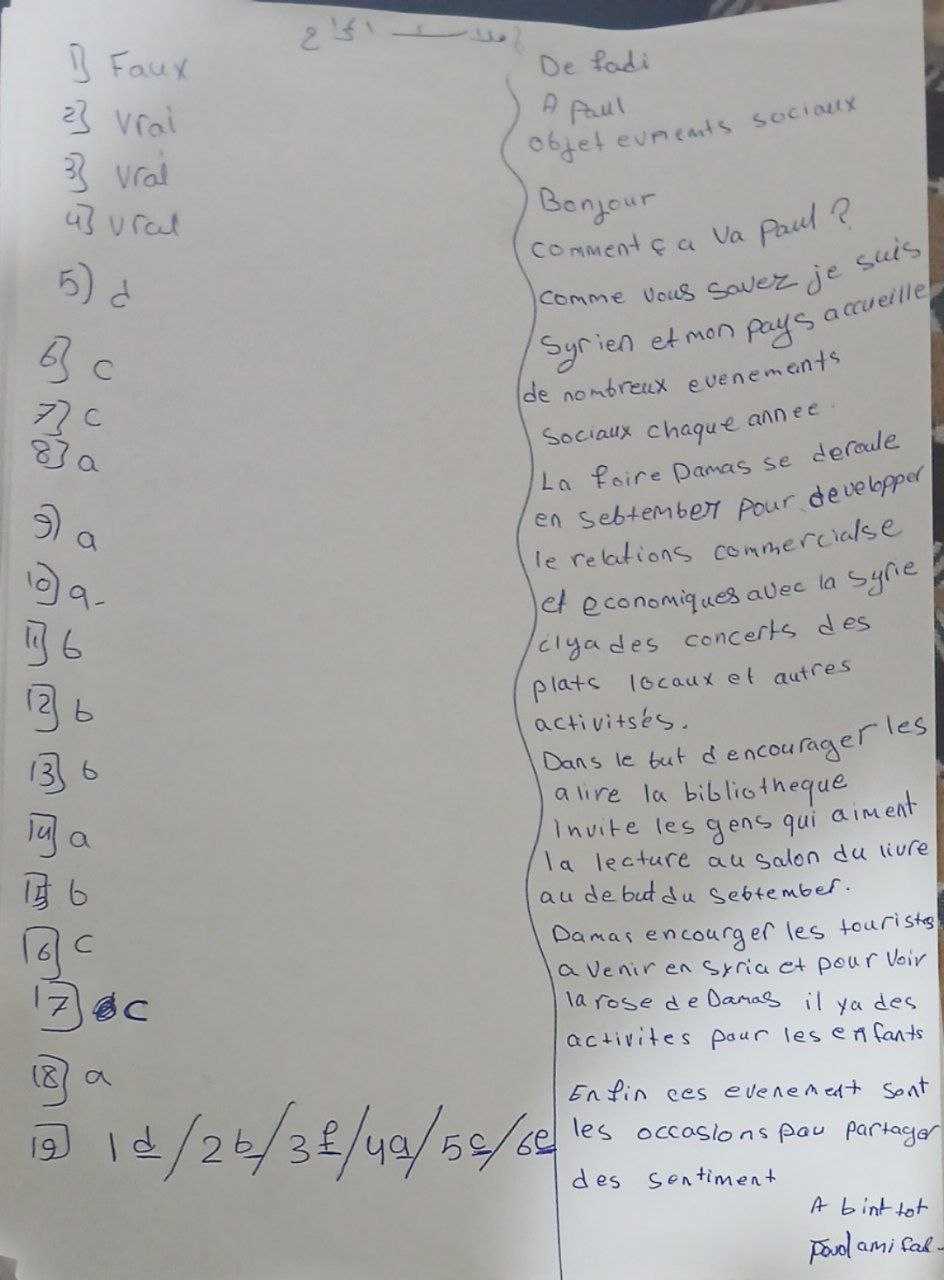 1) Faux
2) Vrai
3) Vrai
4) Vrai
5) d
6) c
7) c
8) a
9) a
10) a-
11) b
12) b
13) b
14) a
15) b
16) c
17) c
18) a
19) 1d/2b/3f/4a/5c/6e
De fadi
A Paul
objet evnents sociaux
Bonjour
comment ça va Paul ?
comme vous savez je suis
Syrien et mon pays accueille
de nombreux evenements
Sociaux chaque annee.
La foire Damas se deroule
en sebtember pour developper
le relations commercialse
et economiques avec la Syrie
ilya des concerts des
plats locaux et autres
activitsés.
Dans le but d encourager les
a lire la bibliotheque
invite les gens qui aiment
la lecture au salon du livre
au debut du sebtember.
Damas encourger les touristes
a venir en Syria et pour voir
la rose de Damas il ya des
activites pour les enfants
Enfin ces evenement sont
les occasions pau partager
des sentiment
A bint tot
ami